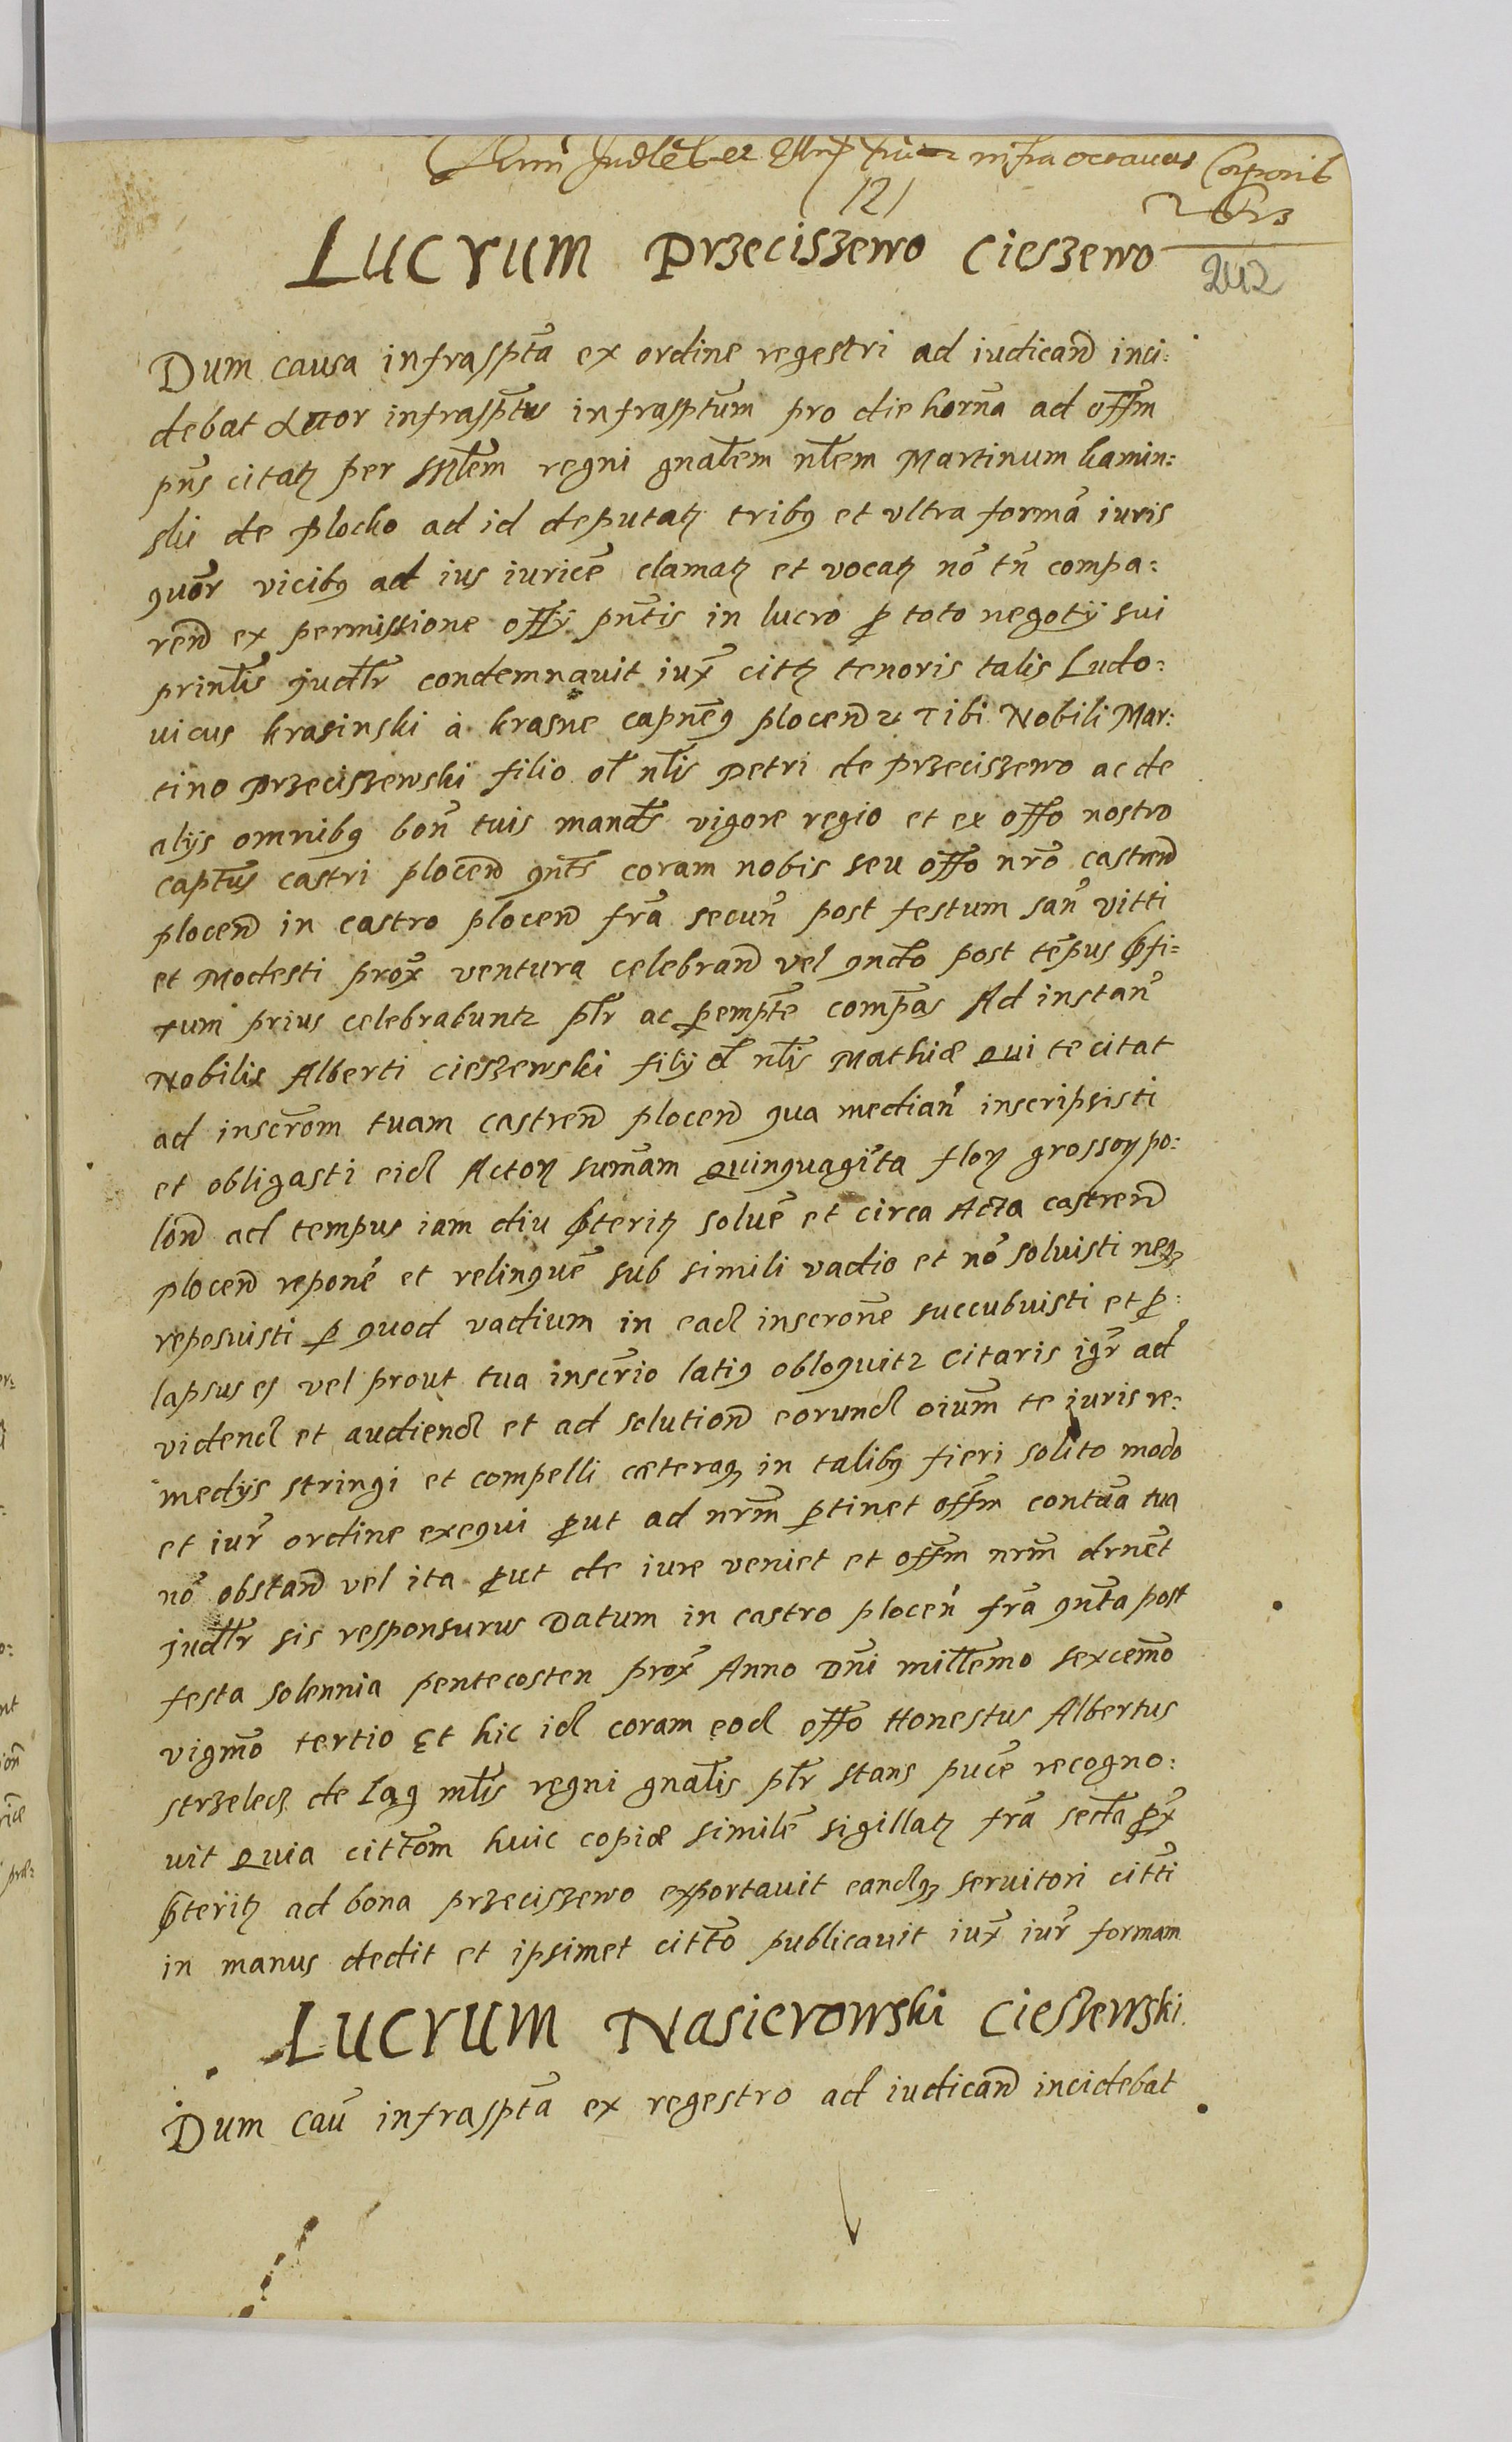 infra octavas Corporis
121
Lucrum Przeciszewo Cieszewo
242
Dum causa infrasptã ex ordine regestri ad iudicand inci:
debat Actor infrasptus infrasptum pro die horña ad offm
pñs citatɀ per mlem regni gnalem nlem Martinum kamin:
ski de plocko ad id deputatɀ tribꝯ et vltra formã iuris
quõr vicibꝯ ad ius iuricẽ clamatɀ et vocatɀ nõ tñ compa:
rend ex permissione offÿ pñtis in lucro ꝓ toto negotÿ sui
prinlis iudlr condemnavit iux̃ cittɀ tenoris talis Ludo:
uicus krasinski à krasne capneꝯ plocenɀ Tibi Nobili Mar:
tino Przeciszewski filio ol nlis Petri de Przeciszewo ac de
alÿs omnibꝯ boñ tuis mandr̃ vigore regio et ex offo nostro
captus castri plocen ꝯntr̃ coram nobis seu offo nrõ castren
plocen in castro plocen frã secuñ post festum sañ vitti
et Modesti prox̃ ventura celebrand vel ꝯndo post tẽpus ꝓfi:
xum prius celebrabuntɀ plr ac ꝑempte compãs Ad instañ
Nobilis Alberti Cieszewski filÿ ol nlis Mathiæ qui te citat
ad inscrõm tuam castren plocen qua mediañ inscripsisti
et obligasti eid Actorɀ sumãm quinquagĩta florɀ grossorɀ po:
lon ad tempus iam diu ꝓteritɀ soluẽ et circa Acta castren
plocen reponẽ et relinquẽ sub simili vadio et nõ soluisti neqɀ
reposuisti ꝑ quod vadium in ead inscrõne succubuisti et ꝑ:
lapsus es vel prout tua inscrio latiꝯ obloquitɀ citaris igr̃ ad
videnð et audiend et ad solution eorund oium te iuris re:
medÿs stringi et compelli cæteraqɀ in talibꝯ fieri solito modo
et iur̃ ordine exequi ꝓut ad nrm ꝑtinet offm contuã tua
nõ obstand vel ita ꝓut de iure veniet et offm nrm drnet
judlr sis responsurus Datum in castro ploceñ frã ꝯnta post
festa solennia pentecosten prox̃ Anno Dñi millemo sexcemo
vigmo tertio Et hic id coram eod offo Honestus Albertus
strzelecɀ de Lag mlis regni gnalis plr stans pucẽ recogno:
uit quia cittõm huic copiæ similẽ sigillatɀ frã secdã ꝓx̃
ꝓteritɀ ad bona Przeciszewo exportavit eandqɀ servitori citti
in manus dedit et ipsimet citto publicavit iux̃ iur̃ formam
Lucrum Nasierowski Cieszewski
Dum caũ infrasptã ex regestro ad iudicand incidebat